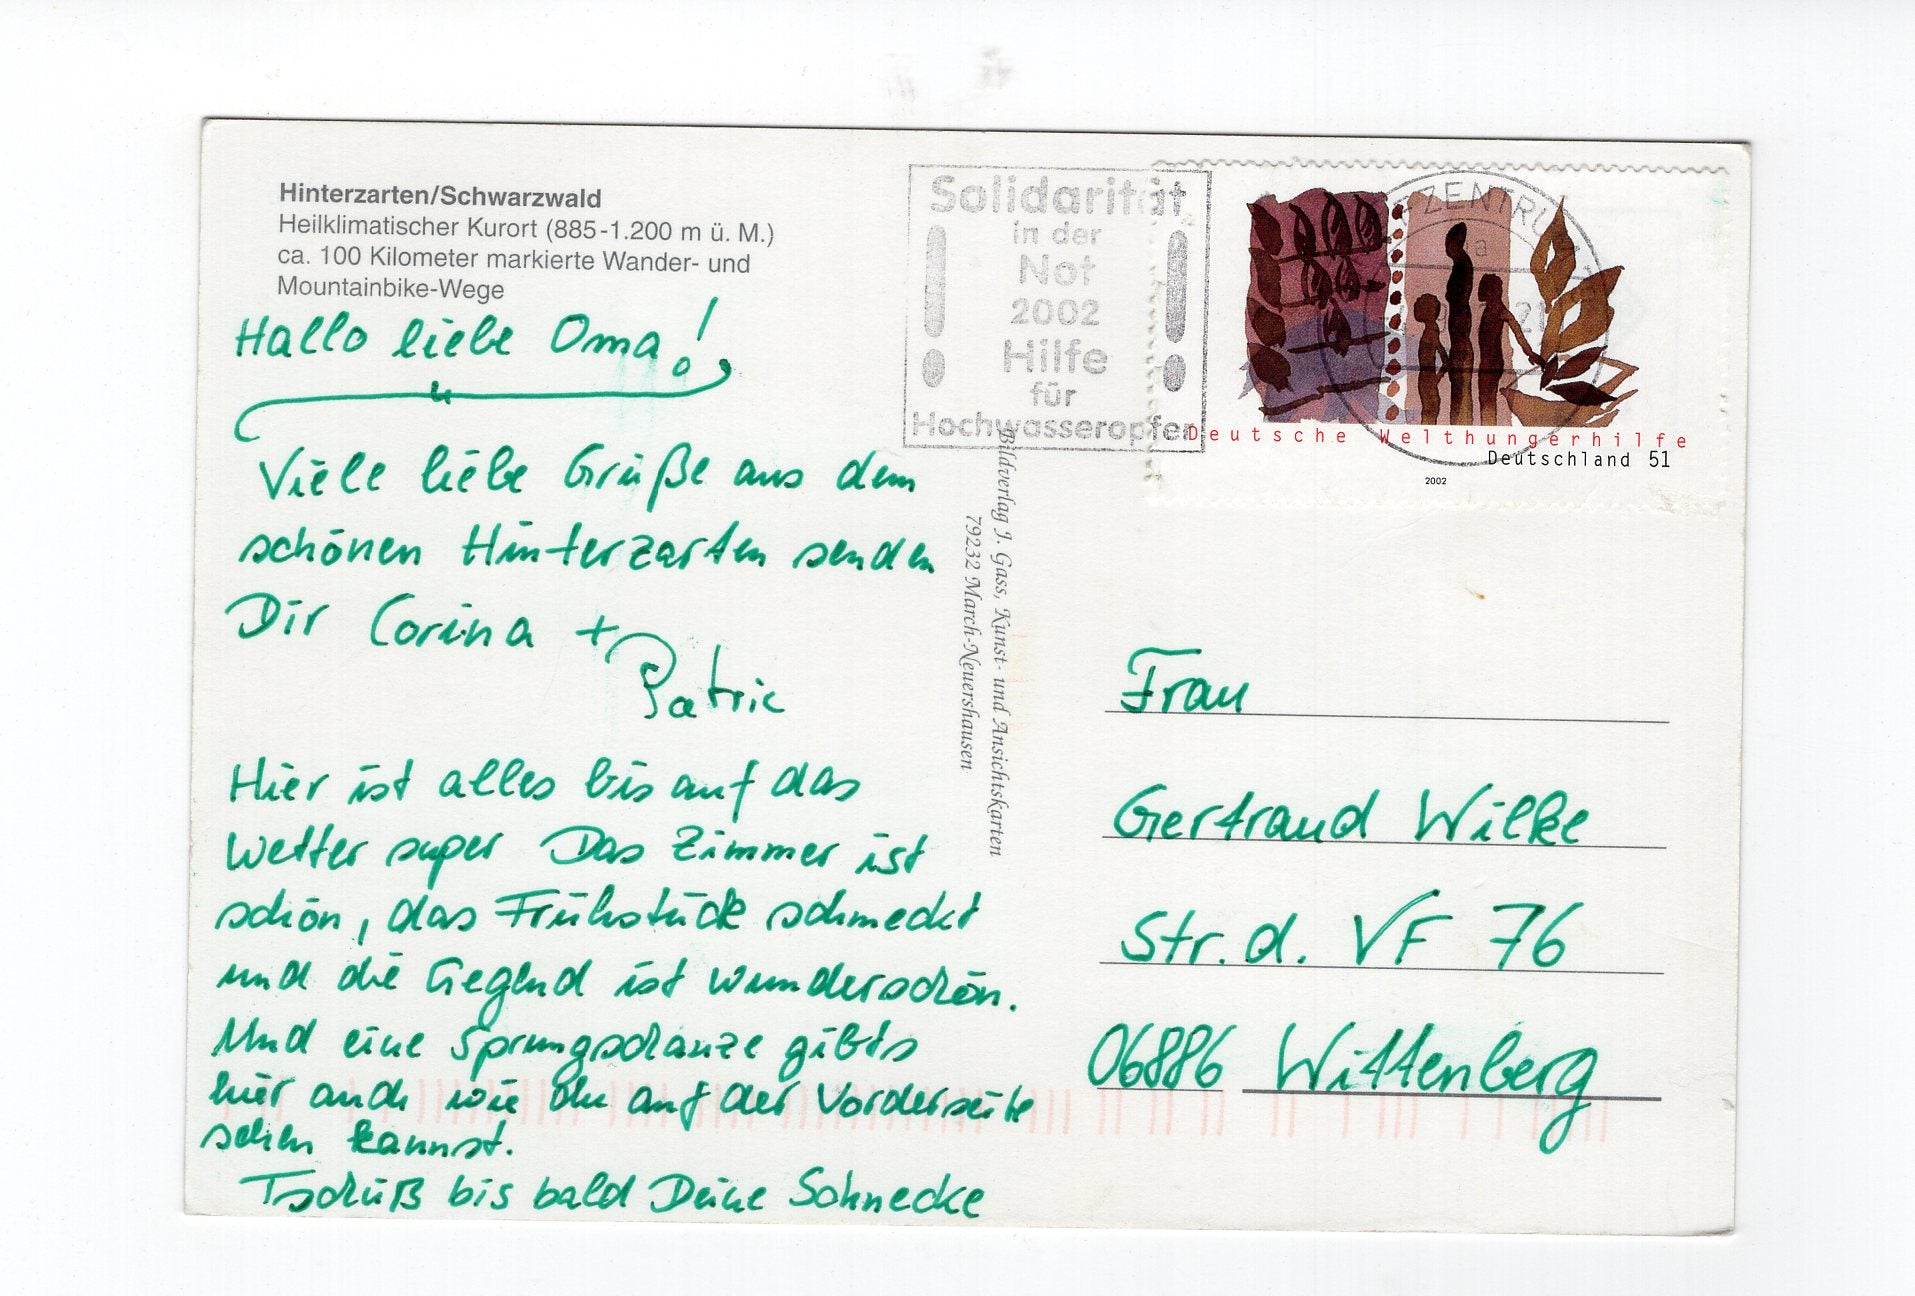 Hinterzarten/Schwarzwald
Heilklimatischer Kurort (885-1.200 m ü. M.)
ca. 100 Kilometer markierte Wander- und
Mountainbike-Wege
Hallo liebe Oma!
Viele liebe Grüße aus dem
schönen Hinterzarten senden
Dir Corina +
Patric
Hier ist alles bis auf das
Wetter super Das Zimmer ist
schön, das Frühstück schmeckt
und die Gegend ist wunderschön.
Und eine Sprungschanze gibts
hier auch wie du auf der Vorderseite
sehen kannst.
Tschüß bis bald Deine Schnecke
Bildverlag J. Gass, Kunst- und Ansichtskarten
79232 March-Neuershausen
Solidarität
in der
Not
2002
Hilfe
für
Hochwasseropfer
ZENTRUM
a
21
Deutsche Welthungerhilfe
Deutschland 51
2002
Frau
Gertraud Wilke
Str. d. VF 76
06886 Wittenberg